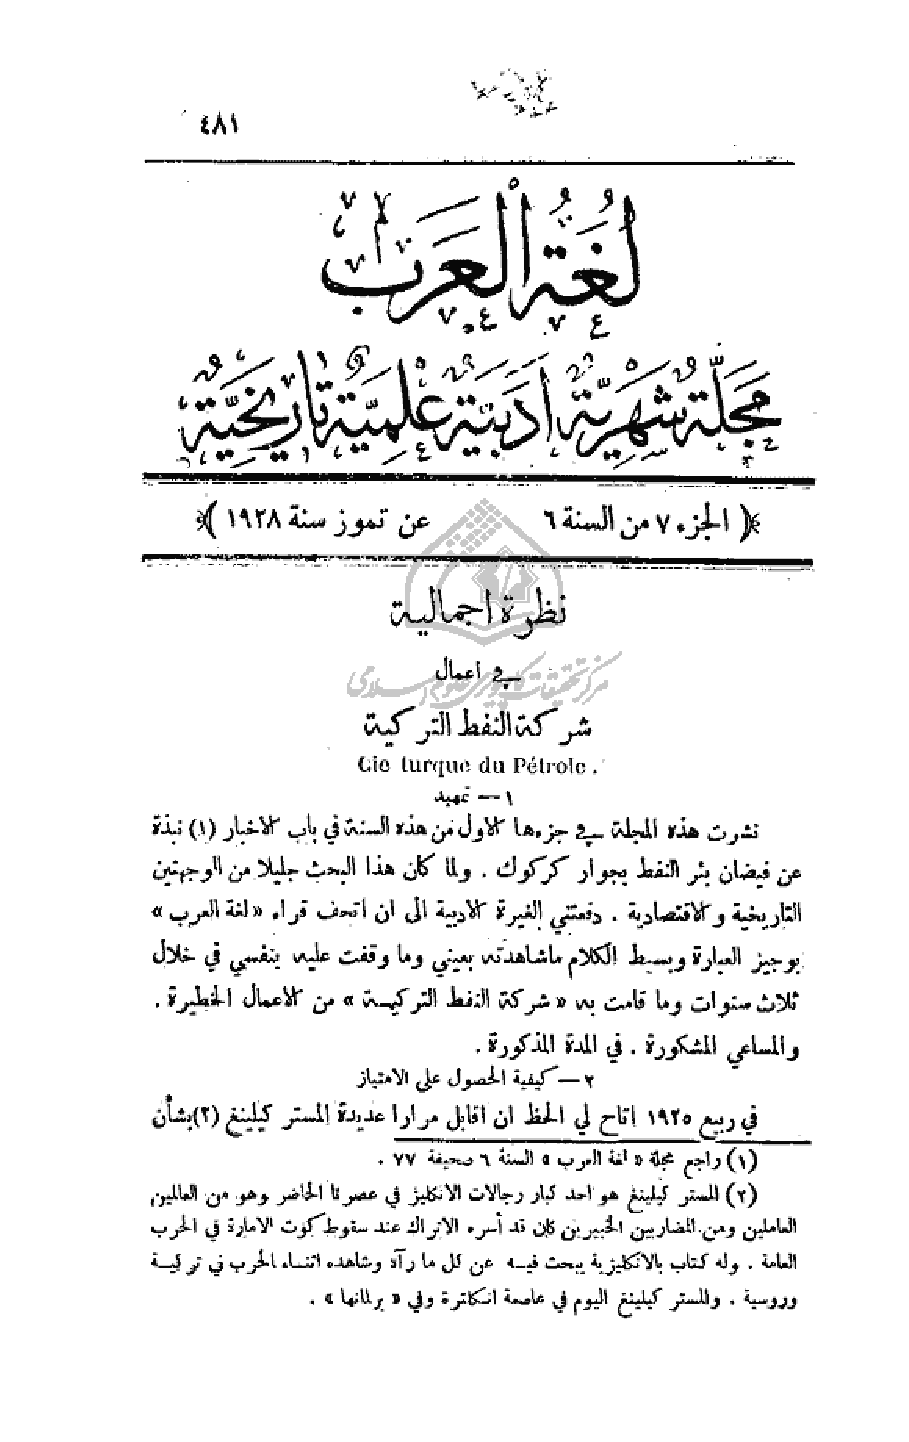 ٤٨١
لُغَةُ الْعَرَب
مَجَلَّة شَهْرِيَّة أَدَبِيَّة عِلْمِيَّة تَارِيخِيَّة
﴿ الجزء ٧ من السنة ٦ عن تموز سنة ١٩٢٨ ﴾
نظرة اجمالية
في اعمال
مركز تحقيقات كامپيوتری علوم اسلامی
شركة النفط التركية
Cie turque du Pétrole.
١ — تمهيد
نشرت هذه المجلة في جزءها الاول من هذه السنة في باب الاخبار (١) نبذة
عن فيضان بئر النفط بجوار كركوك . ولما كان هذا البحث جليلا من الوجهتين
التاريخية والاقتصادية . دفعتني الغيرة الادبية الى ان اتحف قراء « لغة العرب »
بوجيز العبارة وبسيط الكلام ماشاهدته بعيني وما وقفت عليه بنفسي في خلال
ثلاث سنوات وما قامت به « شركة النفط التركية » من الاعمال الخطيرة .
والمساعي المشكورة . في المدة المذكورة .
٢ — كيفية الحصول على الامتياز
في ربيع ١٩٢٥ اتاح لي الحظ ان اقابل مرارا عديدة المستر كيلينغ (٢) بشأن
(١) راجع مجلة « لغة العرب » السنة ٦ صحيفة ٧٧ .
(٢) المستر كيلينغ هو احد كبار رجالات الانكليز في عصرنا الحاضر وهو من العالمين
العاملين ومن المضاربين الخبيرين كان قد أسره الاتراك عند سقوط كوت الامارة في الحرب
العامة . وله كتاب بالانكليزية يبحث فيه عن كل ما رآه وشاهده اثناء الحرب في تركية
وروسية . والمستر كيلينغ اليوم في عاصمة انكلترة وفي « برلمانها » .